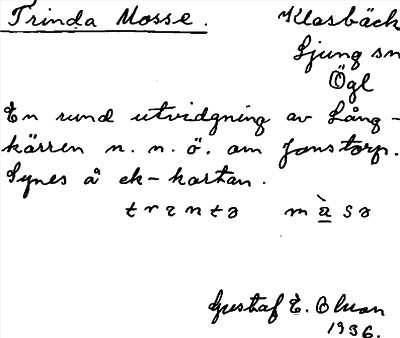 Trinda Mosse.
Klasbäck
Ljung sn
Ögl
En rund utvidgning av Lång-
kärren n. n. ö. om Jonstorp.
Synes å ek-kartan.
Gustaf E. Olson
1936.